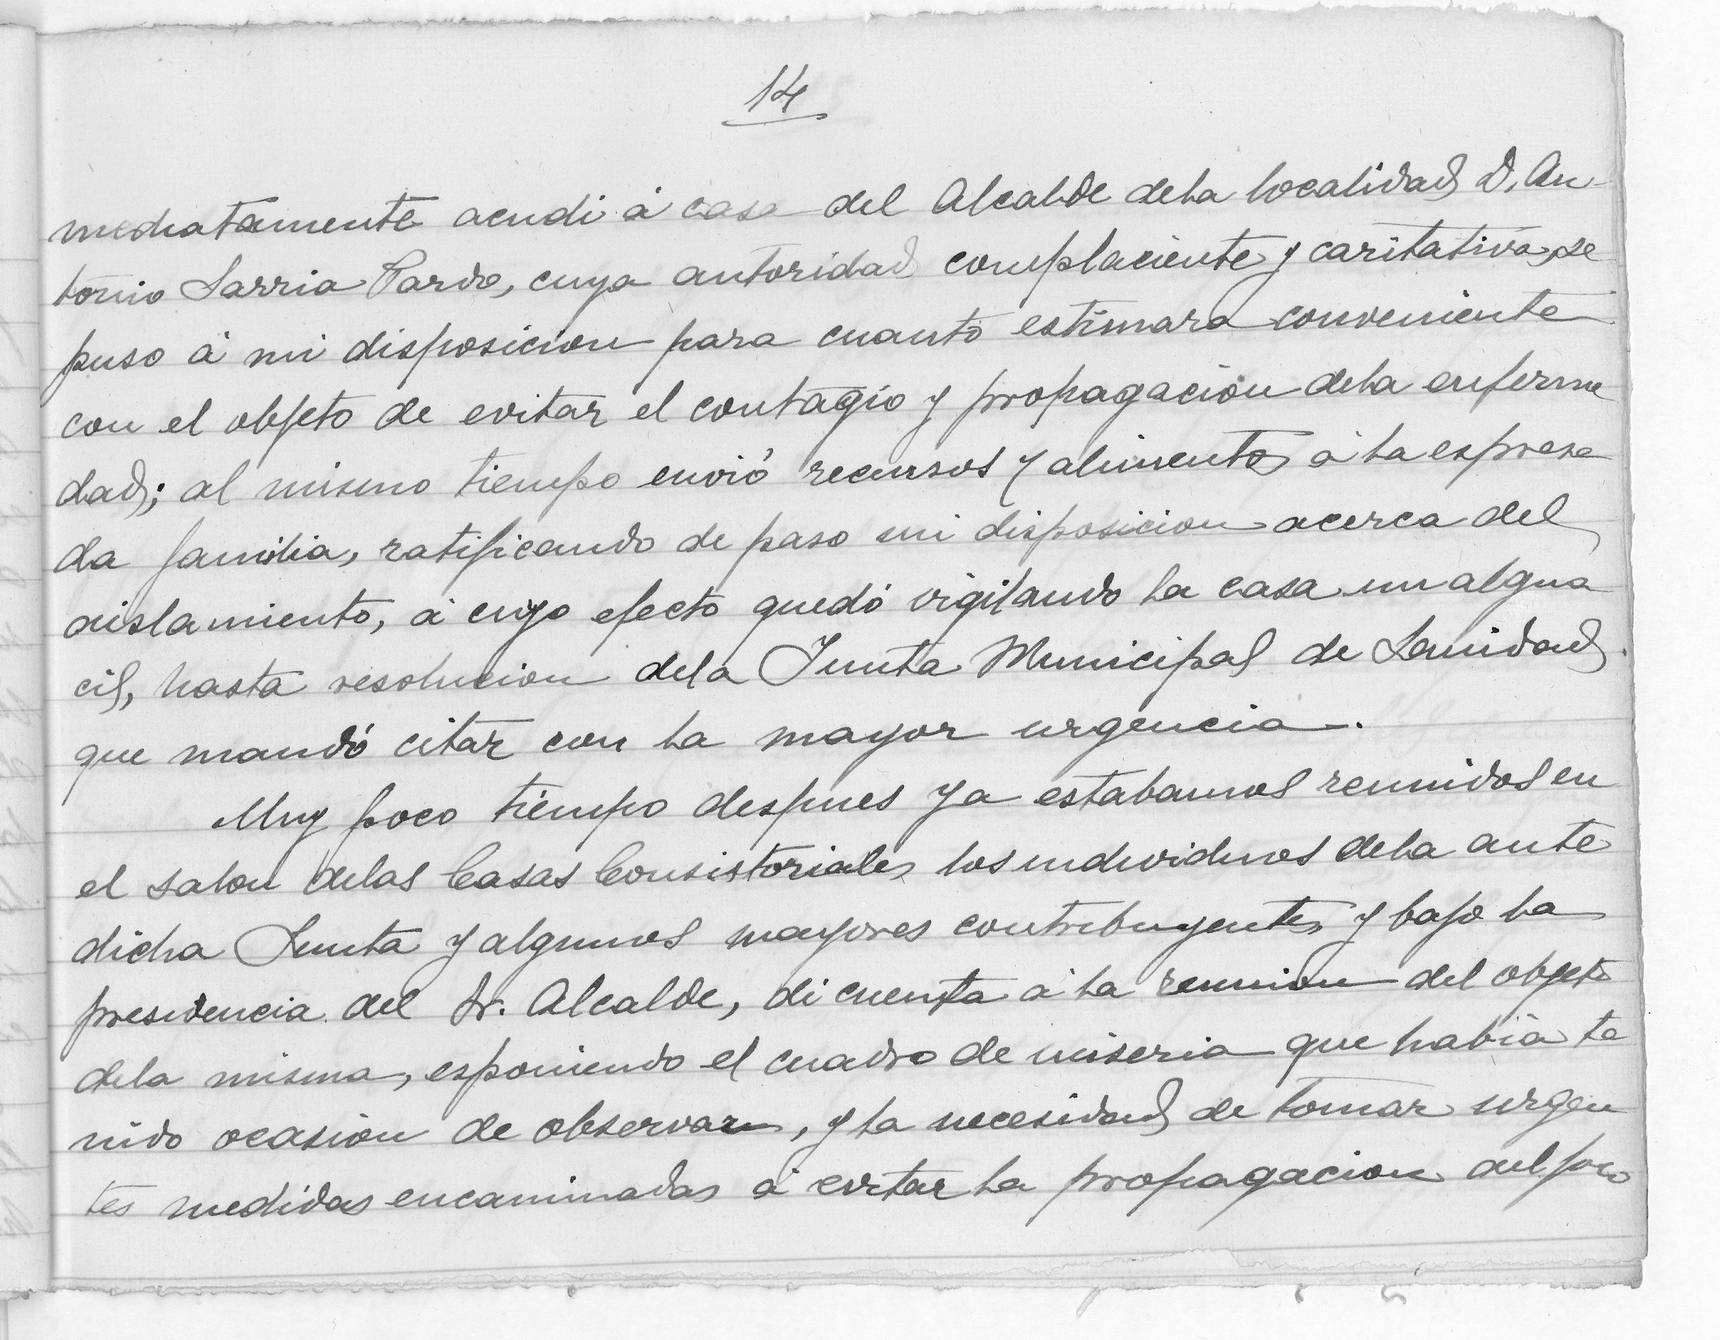 14
mediatamente acudi á casa del Alcalde dela localidad D. An-
tonio Sarria Pardo, cuya autoridad complaciente y caritativa, se
puso á mi disposicion para cuanto estimara conveniente
con el objeto de evitar el contagio y propagacion dela enferme
dad; al mismo tiempo envió recursos y alimentos á la espresa
da familia, ratificando de paso mi disposicion acerca del
aislamiento, á cuyo efecto quedó vigilando la casa un algua
cil, hasta resolucion dela Junta Municipal de Sanidad
que mandó citar con la mayor urgencia.
Muy poco tiempo despues ya estabamos reunidos en
el salon delas Casas Consistoriales los individuos dela ante
dicha Junta y algunos mayores contribuyentes y bajo la
presidencia del Sr. Alcalde, di cuenta á la reunion del objeto
dela misma, esponiendo el cuadro de miseria que habia te
nido ocasion de observar, y la necesidad de tomar urgen
tes medidas encaminadas á evitar la propagacion del foco